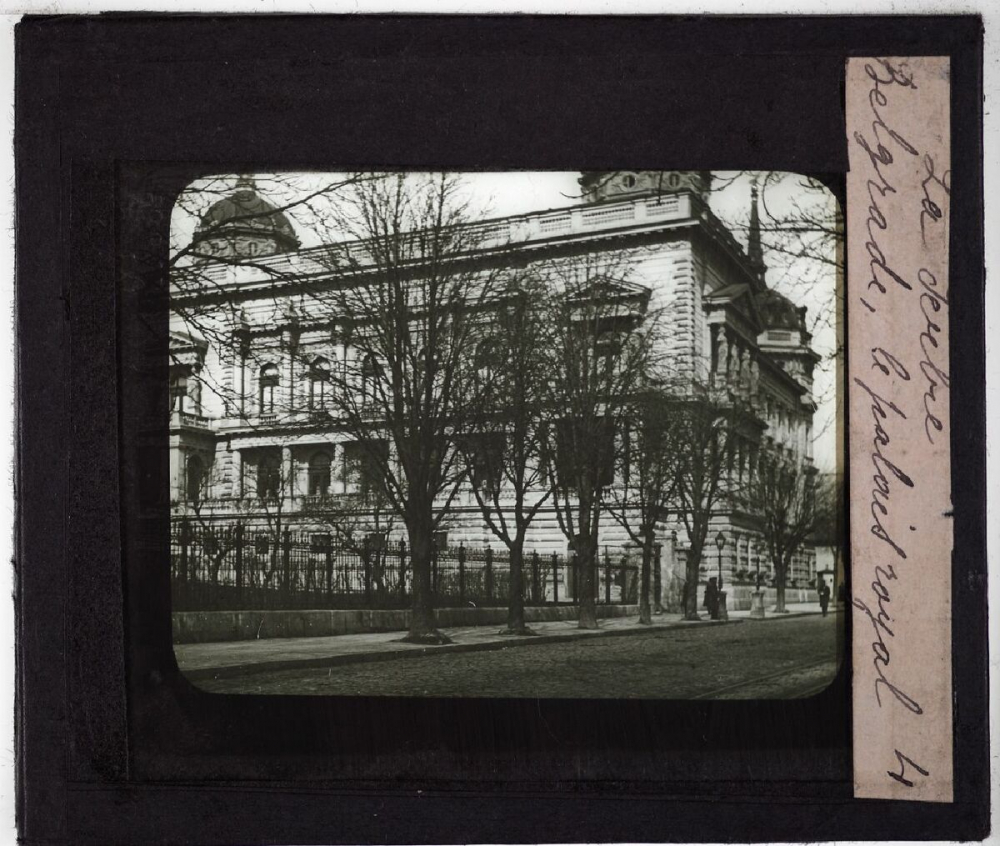 La Serbie
Belgrade, le palais royal 4